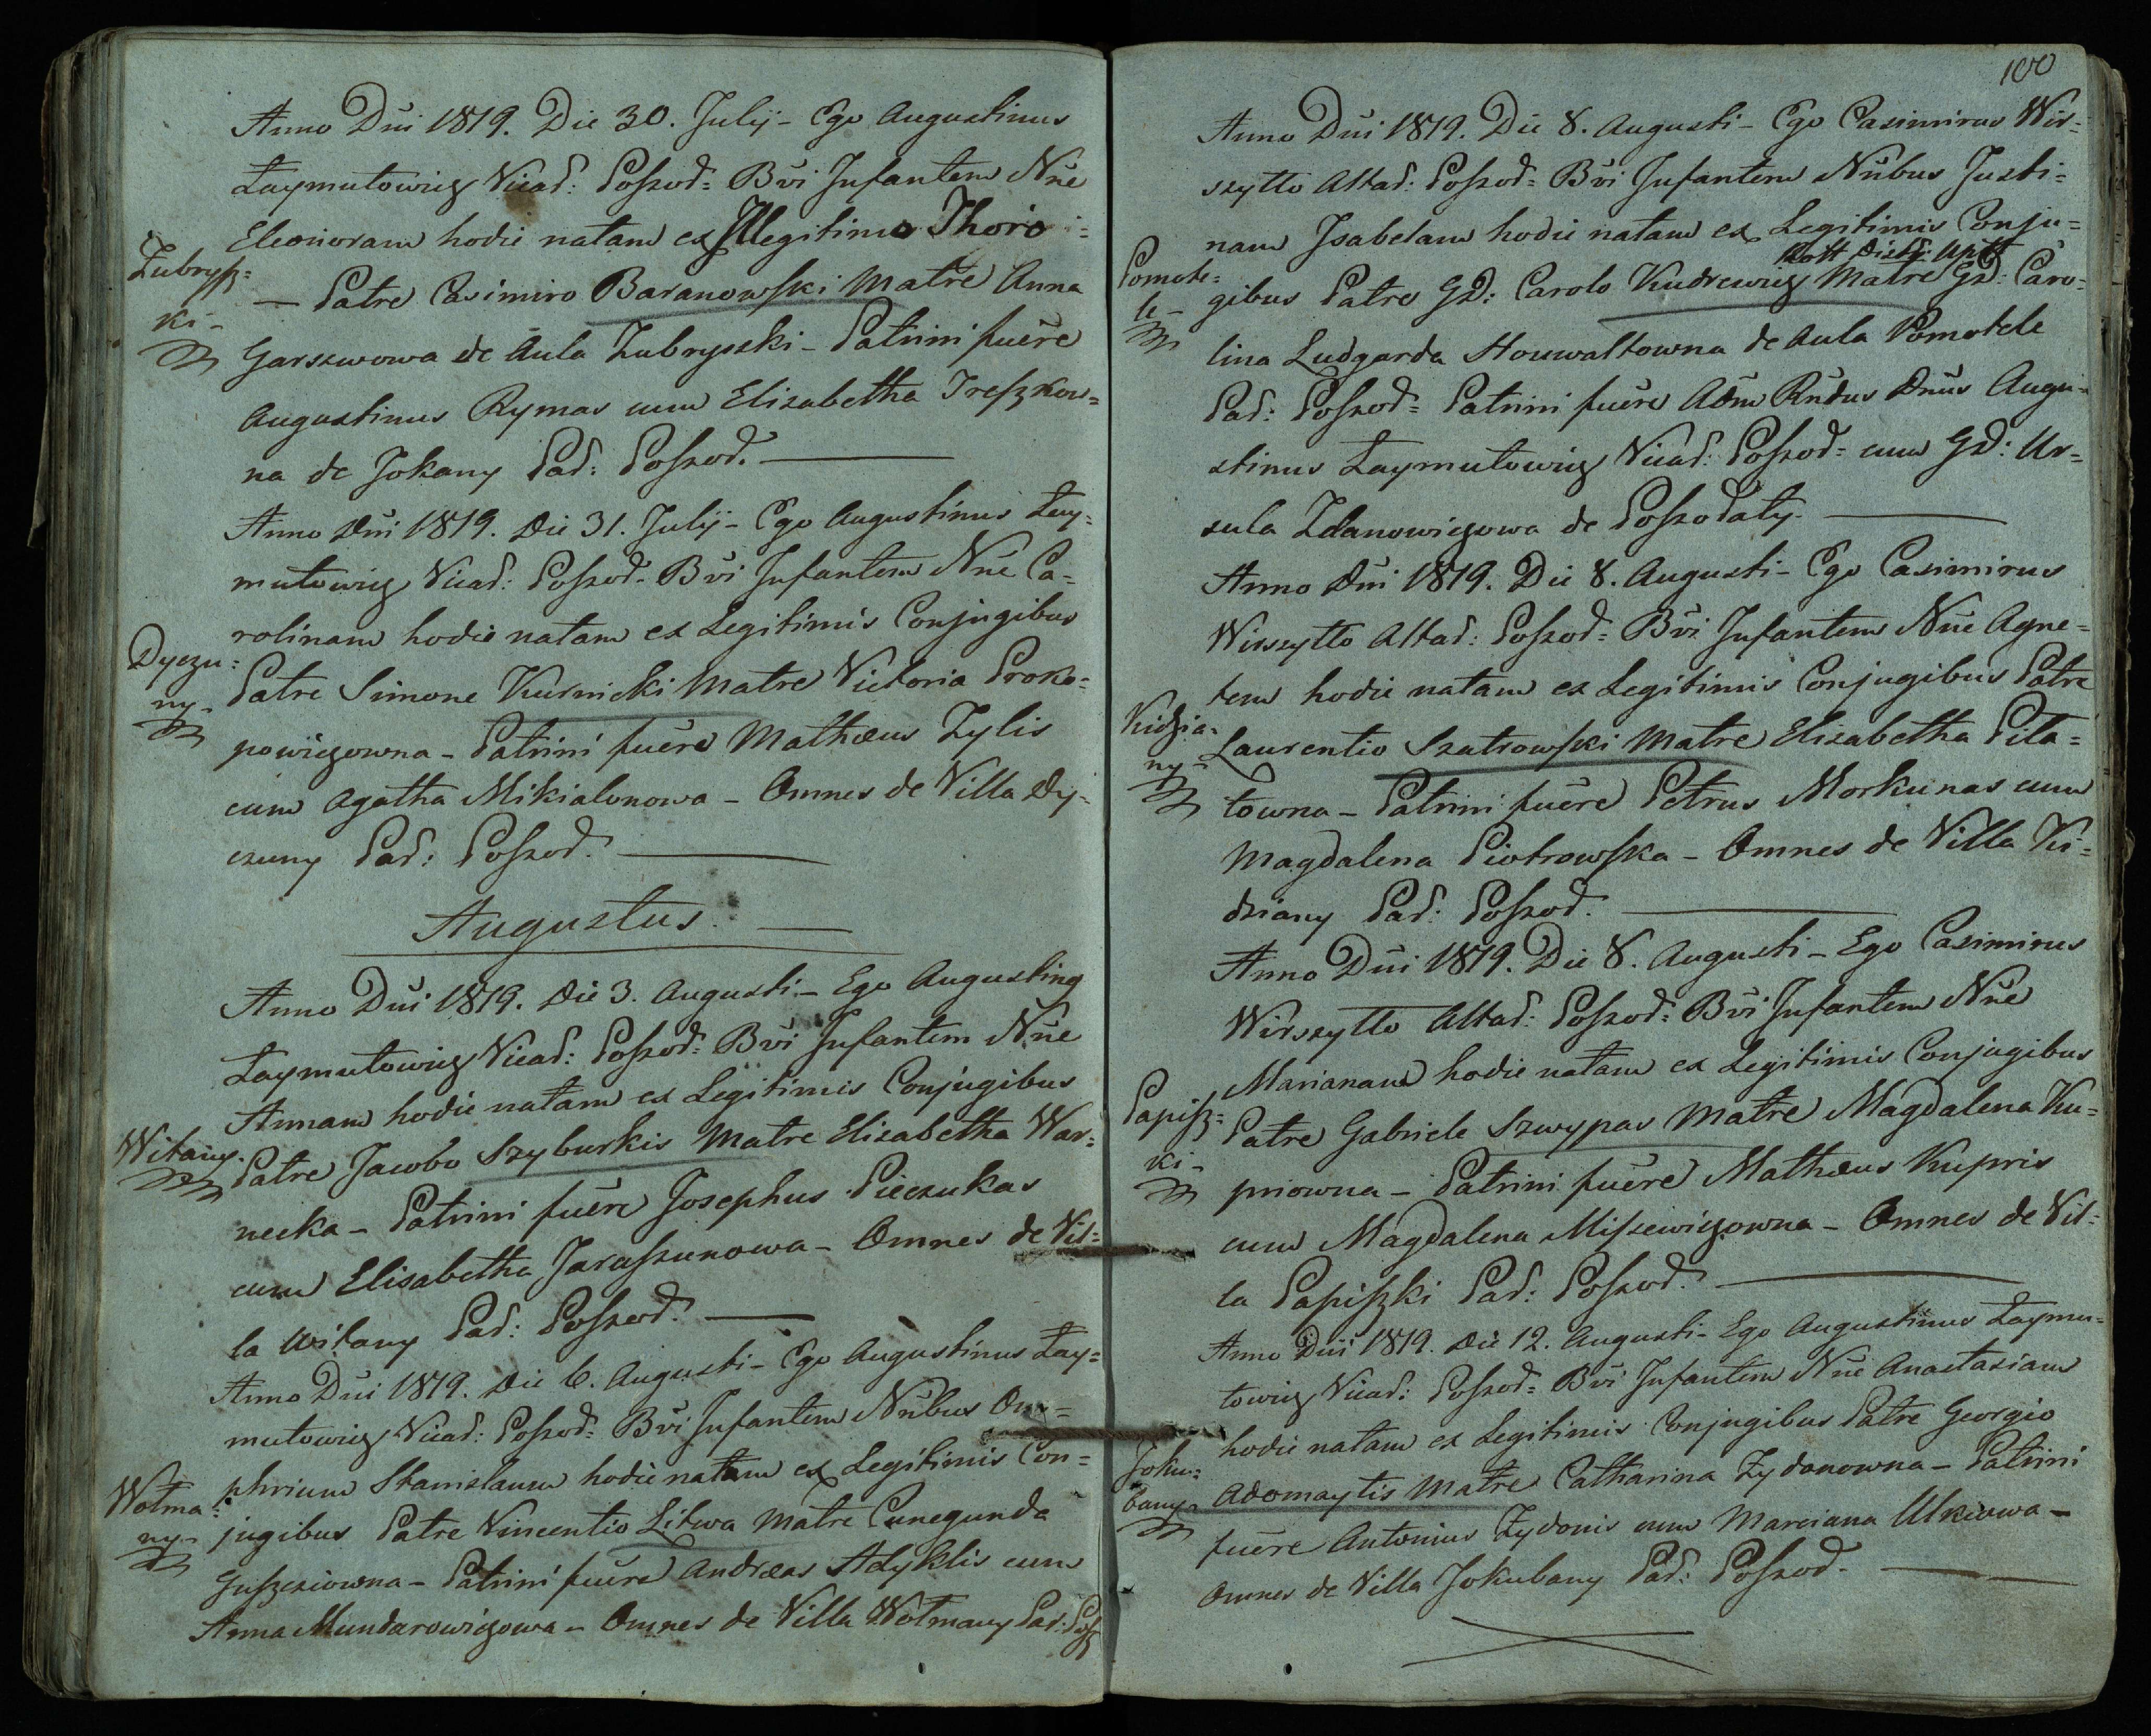 Anno Dni 1819. Die 30. Julij - Ego Augustinus
Łaymutowicz Vicad: Poszod= Bvi Infantem Nne
Eleonoram hodie natam ex Illegitimo Thoro =
Zubrysz=
ki -
— Patre Casimiro Baranowski Matre Anna
Garszwowa de Aula Zubryszki - Patrini fuere
Augustinus Rymas cum Elizabetha Treszkow=
na de Jokany Pad: Poszod.
Anno Dni 1819. Die 31. Julij - Ego Augustinus Łay=
mutowicz Vicad: Poszod. Bvi Infantem Nne Ca=
rolinam hodie natam ex Legitimis Conjugibus
Dyczu=
ny -
Patre Simone Kurnicki Matre Victoria Proko=
powiczowna - Patrini fuere Mathæus Zylis
cum Agatha Mikialonowa - Omnes de Villa Dy=
czuny Pad: Poszod.
Augustus.
Anno Dni 1819. Die 3. Augusti - Ego Augustinq
Łaymutowicz Vicad: Poszod= Bvi Infantem Nne
Annam hodie natam ex Legitimis Conjugibus
Witany.
Patre Jacobo Szyburkis Matre Elisabetha War=
necka - Patrini fuere Josephus Pieczukas
cum Elisabetha Jaraszunowa - Omnes de Vil=
la Witany Pad: Poszod.
Anno Dni 1819. Die 6. Augusti - Ego Augustinus Łay=
mutowicz Vicad: Poszod= Bvi Infantem Nnbus Onu=
phrium Stanislaum hodie natum ex Legitimis Con=
Wotma=
ny -
jugibus Patre Vincentio Litwa Matre Cunegunda
Guszcziowna - Patrini fuere Andræas Adyklis cum
Anna Mundarowiczowa - Omnes de Villa Wotmany Pad: Posz
100
Anno Dni 1819. Die 8. Augusti - Ego Casimirus Wir=
szytto Altad: Poszod= Bvi Infantem Nnbus Justi=
nam Isabelam hodie natam ex Legitimis Conju=
Pomote=
le -
gibus Patre GD: Carolo Kudrewicz Matre GD: Caro=
lina Ludgarda Houwaltowna de Aula Pomotele
Pad: Poszod= Patrini fuere Adm Rndus Dnus Augu=
stinus Łaymutowicz Vicad: Poszod= cum GD: Ur=
sula Zdanowiczowa de Poszodaty.
Anno Dni 1819. Die 8. Augusti - Ego Casimirus
Wirszytto Altad: Poszod= Bvi Infantem Nne Agne=
tem hodie natam ex Legitimis Conjugibus Patre
Kidzia=
ny -
Laurentio Szatrowski Matre Elisabetha Pita=
towna - Patrini fuere Petrus Morkunas cum
Magdalena Piotrowska - Omnes de Villa Ki=
dziany Pad: Poszod.
Anno Dni 1819. Die 8. Augusti - Ego Casimirus
Wirszytto Altad: Poszod: Bvi Infantem Nne
Marianam hodie natam ex Legitimis Conjugibus
Papisz=
ki -
Patre Gabriele Szwypas Matre Magdalena Ku=
priowna - Patrini fuere Mathæus Kupris
cum Magdalena Miszewiczowna - Omnes de Vil=
la Papiszki Pad: Poszod.
Anno Dni 1819. Die 12. Augusti - Ego Augustinus Łaymu=
towicz Vicad: Poszod= Bvi Infantem Nne Anastasiam
hodie natam ex Legitimis Conjugibus Patre Georgio
Joku=
bany -
Adomaytis Matre Catharina Zydonowna - Patrini
fuere Antonius Zydonis cum Marciana Ulkiowa -
Omnes de Villa Jokubany Pad: Poszod.